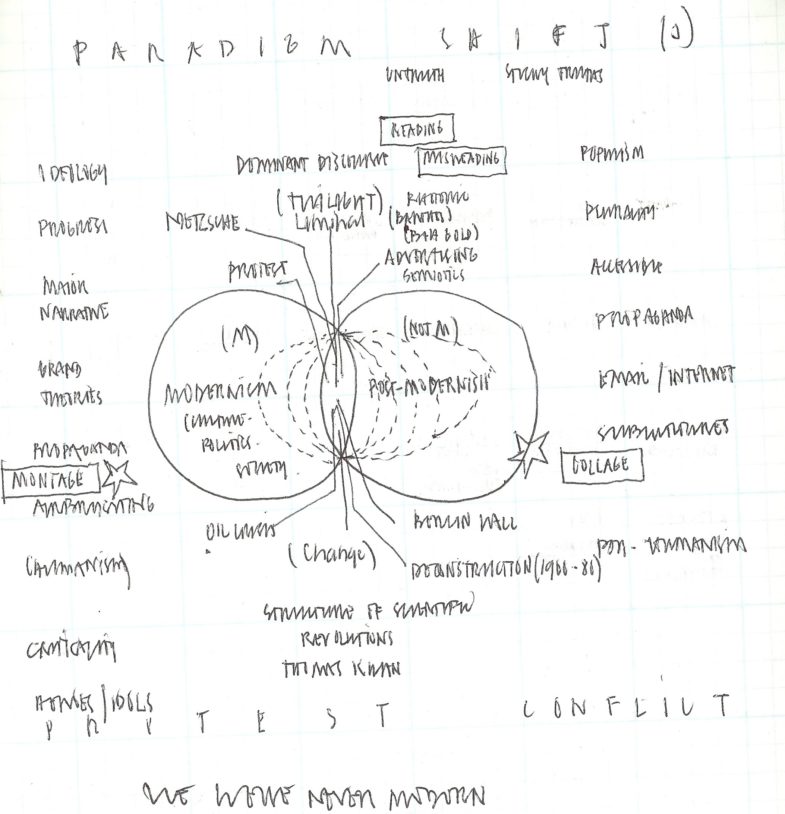 PARADIGM SHIFT (S)
UNTRUTH
READING
DOMINANT DISCOURSE
MISREADING
(TWILIGHT)
Liminal
RHETORIC
(BARTHES)
NIETZSCHE
PROTEST
ADVERTISING
SEMIOTICS
IDEOLOGY
PROGRESS
MAJOR
NARRATIVE
GRAND
THEORIES
PROPAGANDA
MONTAGE
HUMANISM
CRITICALITY
HEROES / IDOLS
(M)
MODERNISM
CULTURE-
POLITICS-
SOCIETY.
(NOT M)
POST-MODERNISM
POPULISM
PLURALISM
ACCESSIBLE
PROPAGANDA
EMAIL / INTERNET
SUBCULTURES
COLLAGE
POST-HUMANISM
OIL CRISIS
(Change)
BERLIN WALL
DECONSTRUCTION (1966-86)
STRUCTURE OF SCIENTIFIC
REVOLUTIONS
THOMAS KUHN
PROTEST CONFLICT
WE WERE NEVER MODERN